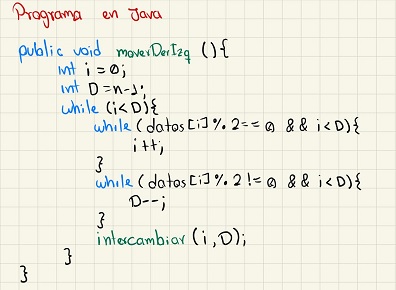 Programa en Java
public void moverDerIzq (){
int i = 0;
int D = n-1;
while (i<D){
while (datos[i]%2==0 && i<D){
i++;
}
while (datos[i]%2!=0 && i<D){
D--;
}
intercambiar (i,D);
}
}